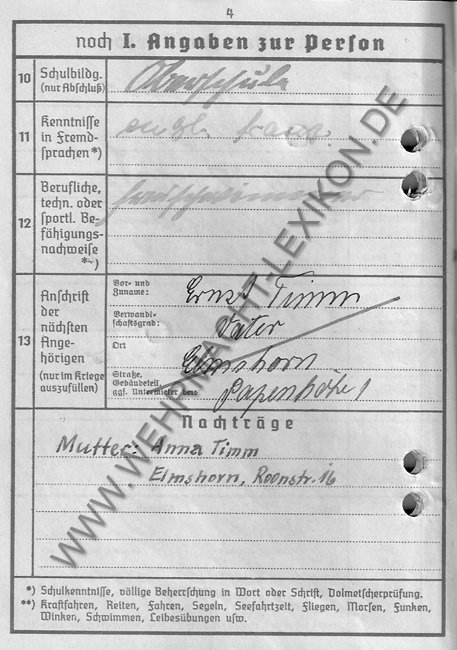 4
noch I. Angaben zur Person
10 Schulbildg. Oberschule
(nur Abschluß)
11 Kenntnisse engl. franz.
in Fremd-
sprachen*)
12 Berufliche, Freischwimmer
techn. oder
sportl. Be-
fähigungs-
nachweise
**)
13 Anschrift
der
nächsten
Ange-
hörigen
(nur im Kriege
auszufüllen)
Vor- und
Zuname: Ernst Timm
Verwandt-
schaftsgrad: Vater
Ort Elmshorn
Straße,
Gebäudeteil,
ggf. Untermieter bei: Papenhöhe 1
Nachträge
Mutter: Anna Timm
Elmshorn, Roonstr. 16
*) Schulkenntnisse, völlige Beherrschung in Wort oder Schrift, Dolmetscherprüfung.
**) Kraftfahren, Reiten, Fahren, Segeln, Seefahrtzeit, Fliegen, Morsen, Funken,
Winken, Schwimmen, Leibesübungen usw.
WWW.WEHRMACHT-LEXIKON.DE